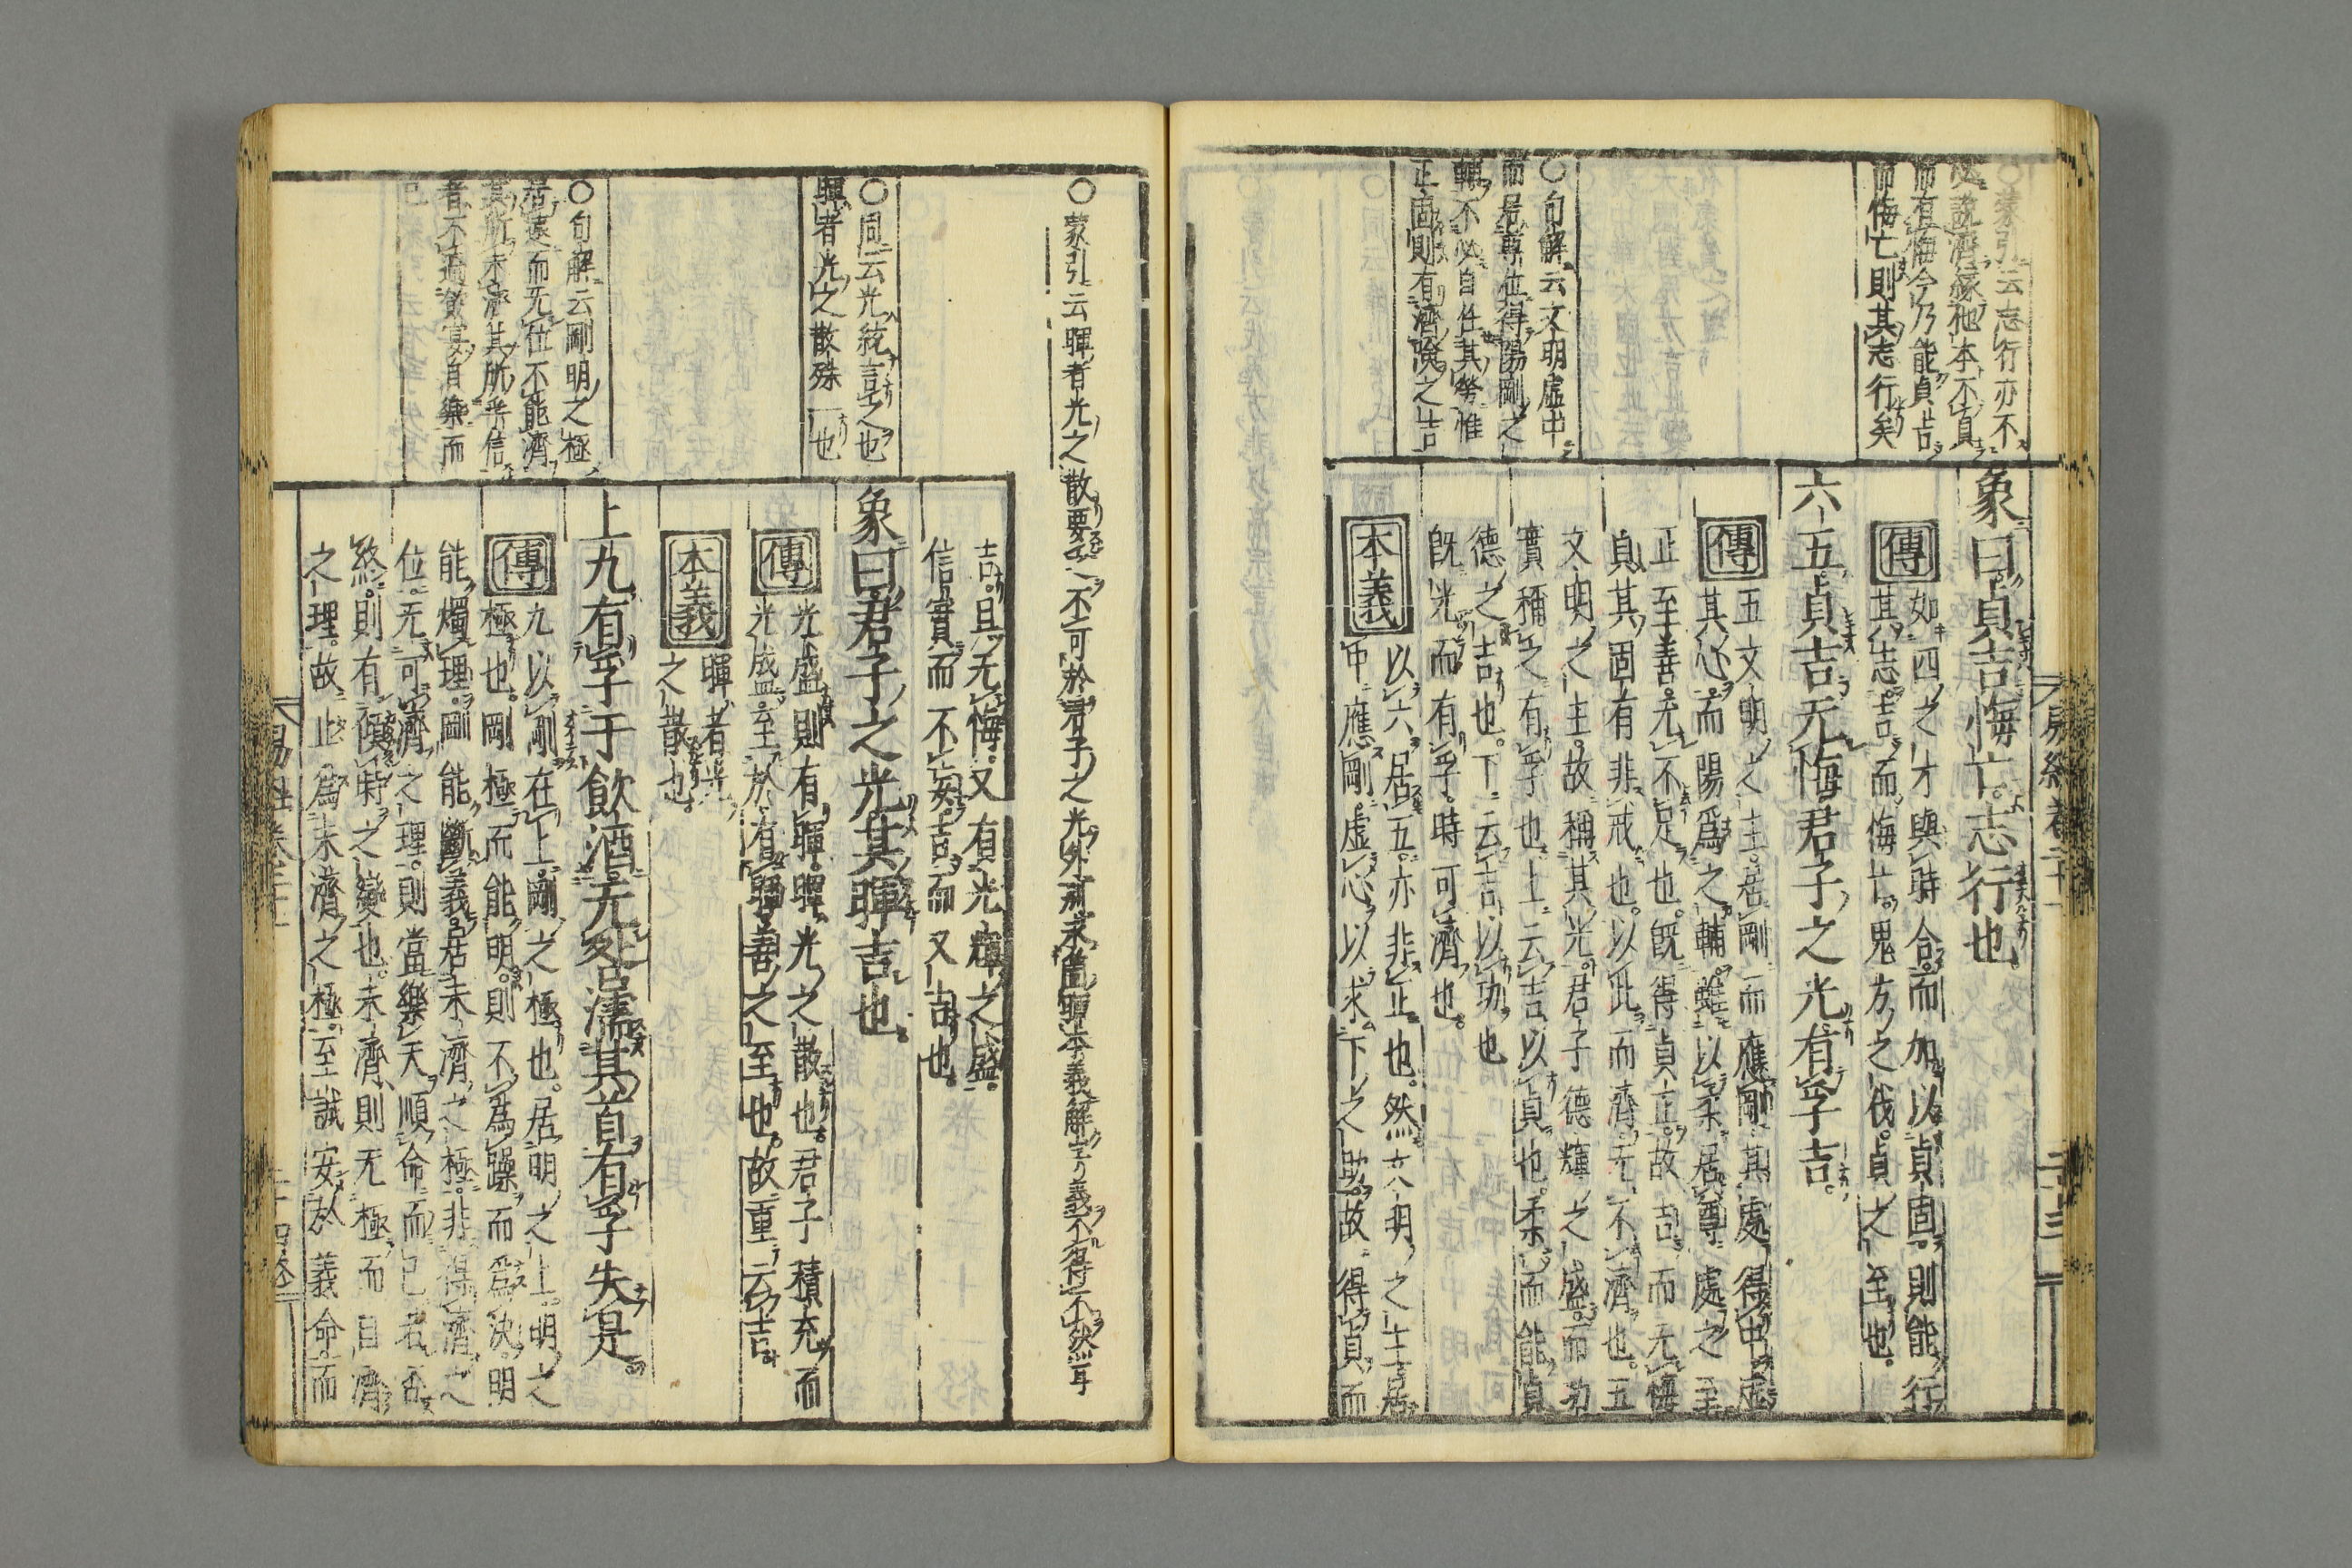 ○蒙引云志行亦不
必說濟緣他本不貞
而有悔今乃能貞吉
而悔亡則其志行矣
○句解云文明虛中
而居尊位得陽剛之
輔不必自任其勞惟
正固則有濟險之吉
象曰貞吉悔亡志行也
傳如四之才與時合而加以貞固則能行
其志吉而悔亡鬼方之伐貞之至也
六五貞吉无悔君子之光有孚吉
傳五文明之主居剛而應剛其處得中虛
其心而陽爲之輔雖以柔居尊處之至
正至善无不足也旣得貞正故吉而无悔
貞其固有非戒也以此而濟无不濟也五
文明之主故稱其光君子德輝之盛而功
實稱之有孚也上云吉以貞也柔而能貞
德之吉也下云吉以功也
旣光而有孚時可濟也
本義以六居五亦非正也然文明之主居
中應剛虛心以求下之助故得貞而
易經卷二十一
二十三
○蒙引云暉者光之散要之不可於君子之光外而求暉本義解字義不得不然耳
○同云光統言之也
暉者光之散殊一也
○句解云剛明之極
居遠而无位不能濟
其所未濟其所孚信
者不過飲宴自樂而
已
吉且无悔又有光輝之盛
信實而不妄吉而又吉也
象曰君子之光其暉吉也
傳光盛則有暉暉光之散也君子積充而
光盛至於有暉善之至也故重云吉
本義暉者光
之散也
上九有孚于飲酒无咎濡其首有孚失是
傳九以剛在上剛之極也居明之上明之
極也剛極而能明則不爲躁而爲決明
能燭理剛能斷義居未濟之極非得濟之
位无可濟之理則當樂天順命而已若否
終則有傾時之變也未濟則无極而自濟
之理故止爲未濟之極至誠安於義命而
易經卷二十一
二十四終